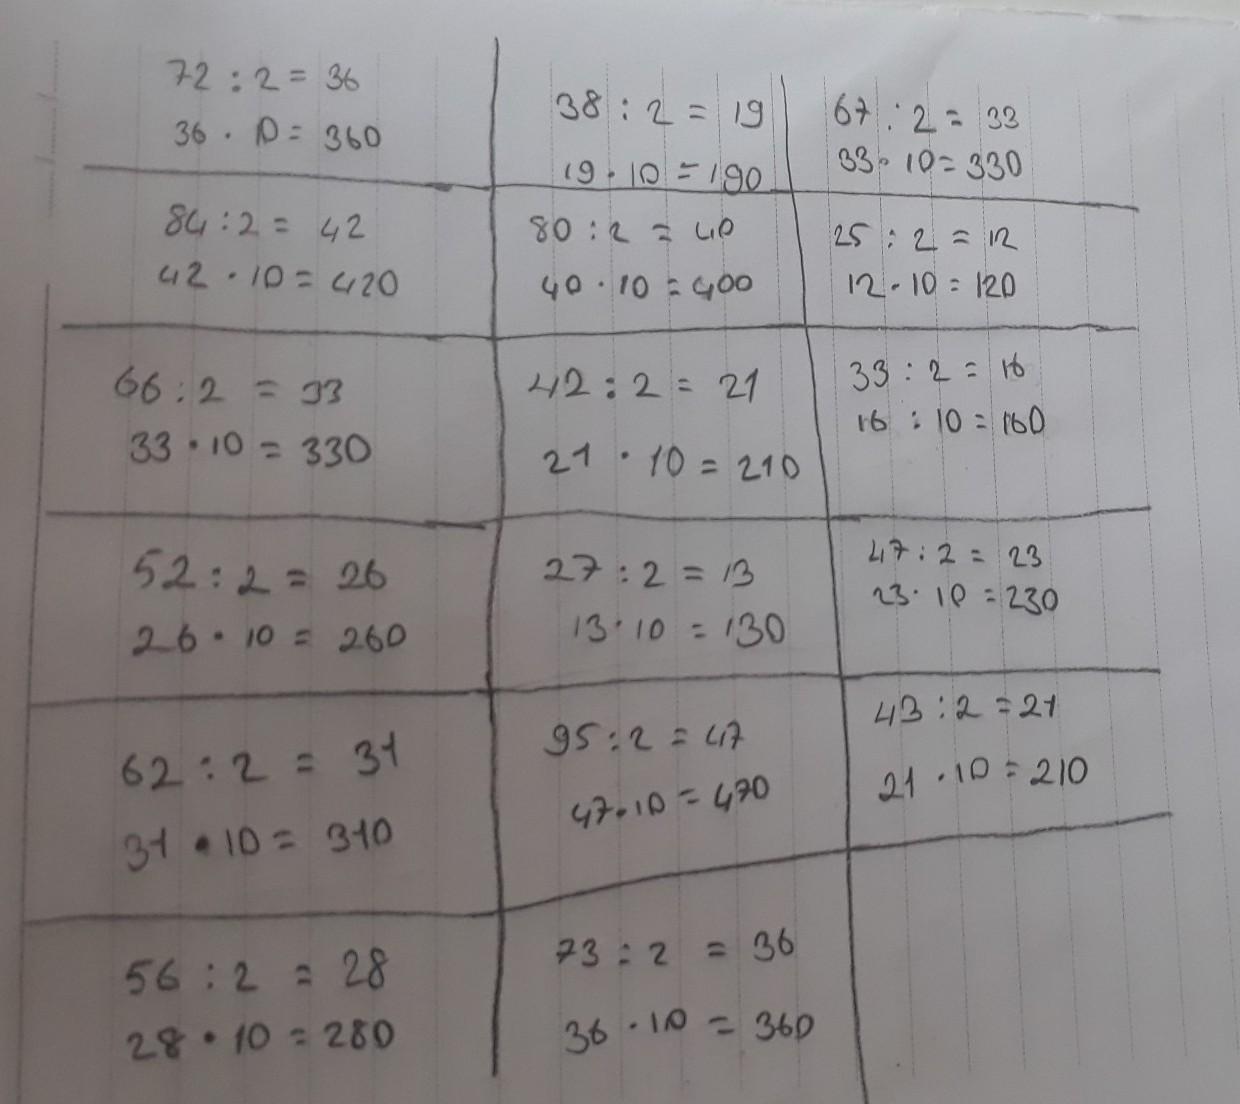 72 : 2 = 36
36 · 10 = 360
38 : 2 = 19
19 · 10 = 190
67 : 2 = 33
33 · 10 = 330
84 : 2 = 42
42 · 10 = 420
80 : 2 = 40
40 · 10 = 400
25 : 2 = 12
12 · 10 = 120
66 : 2 = 33
33 · 10 = 330
42 : 2 = 21
21 · 10 = 210
33 : 2 = 16
16 : 10 = 160
52 : 2 = 26
26 · 10 = 260
27 : 2 = 13
13 · 10 = 130
47 : 2 = 23
23 · 10 = 230
62 : 2 = 31
31 · 10 = 310
95 : 2 = 47
47 · 10 = 470
43 : 2 = 21
21 · 10 = 210
56 : 2 = 28
28 · 10 = 280
73 : 2 = 36
36 · 10 = 360